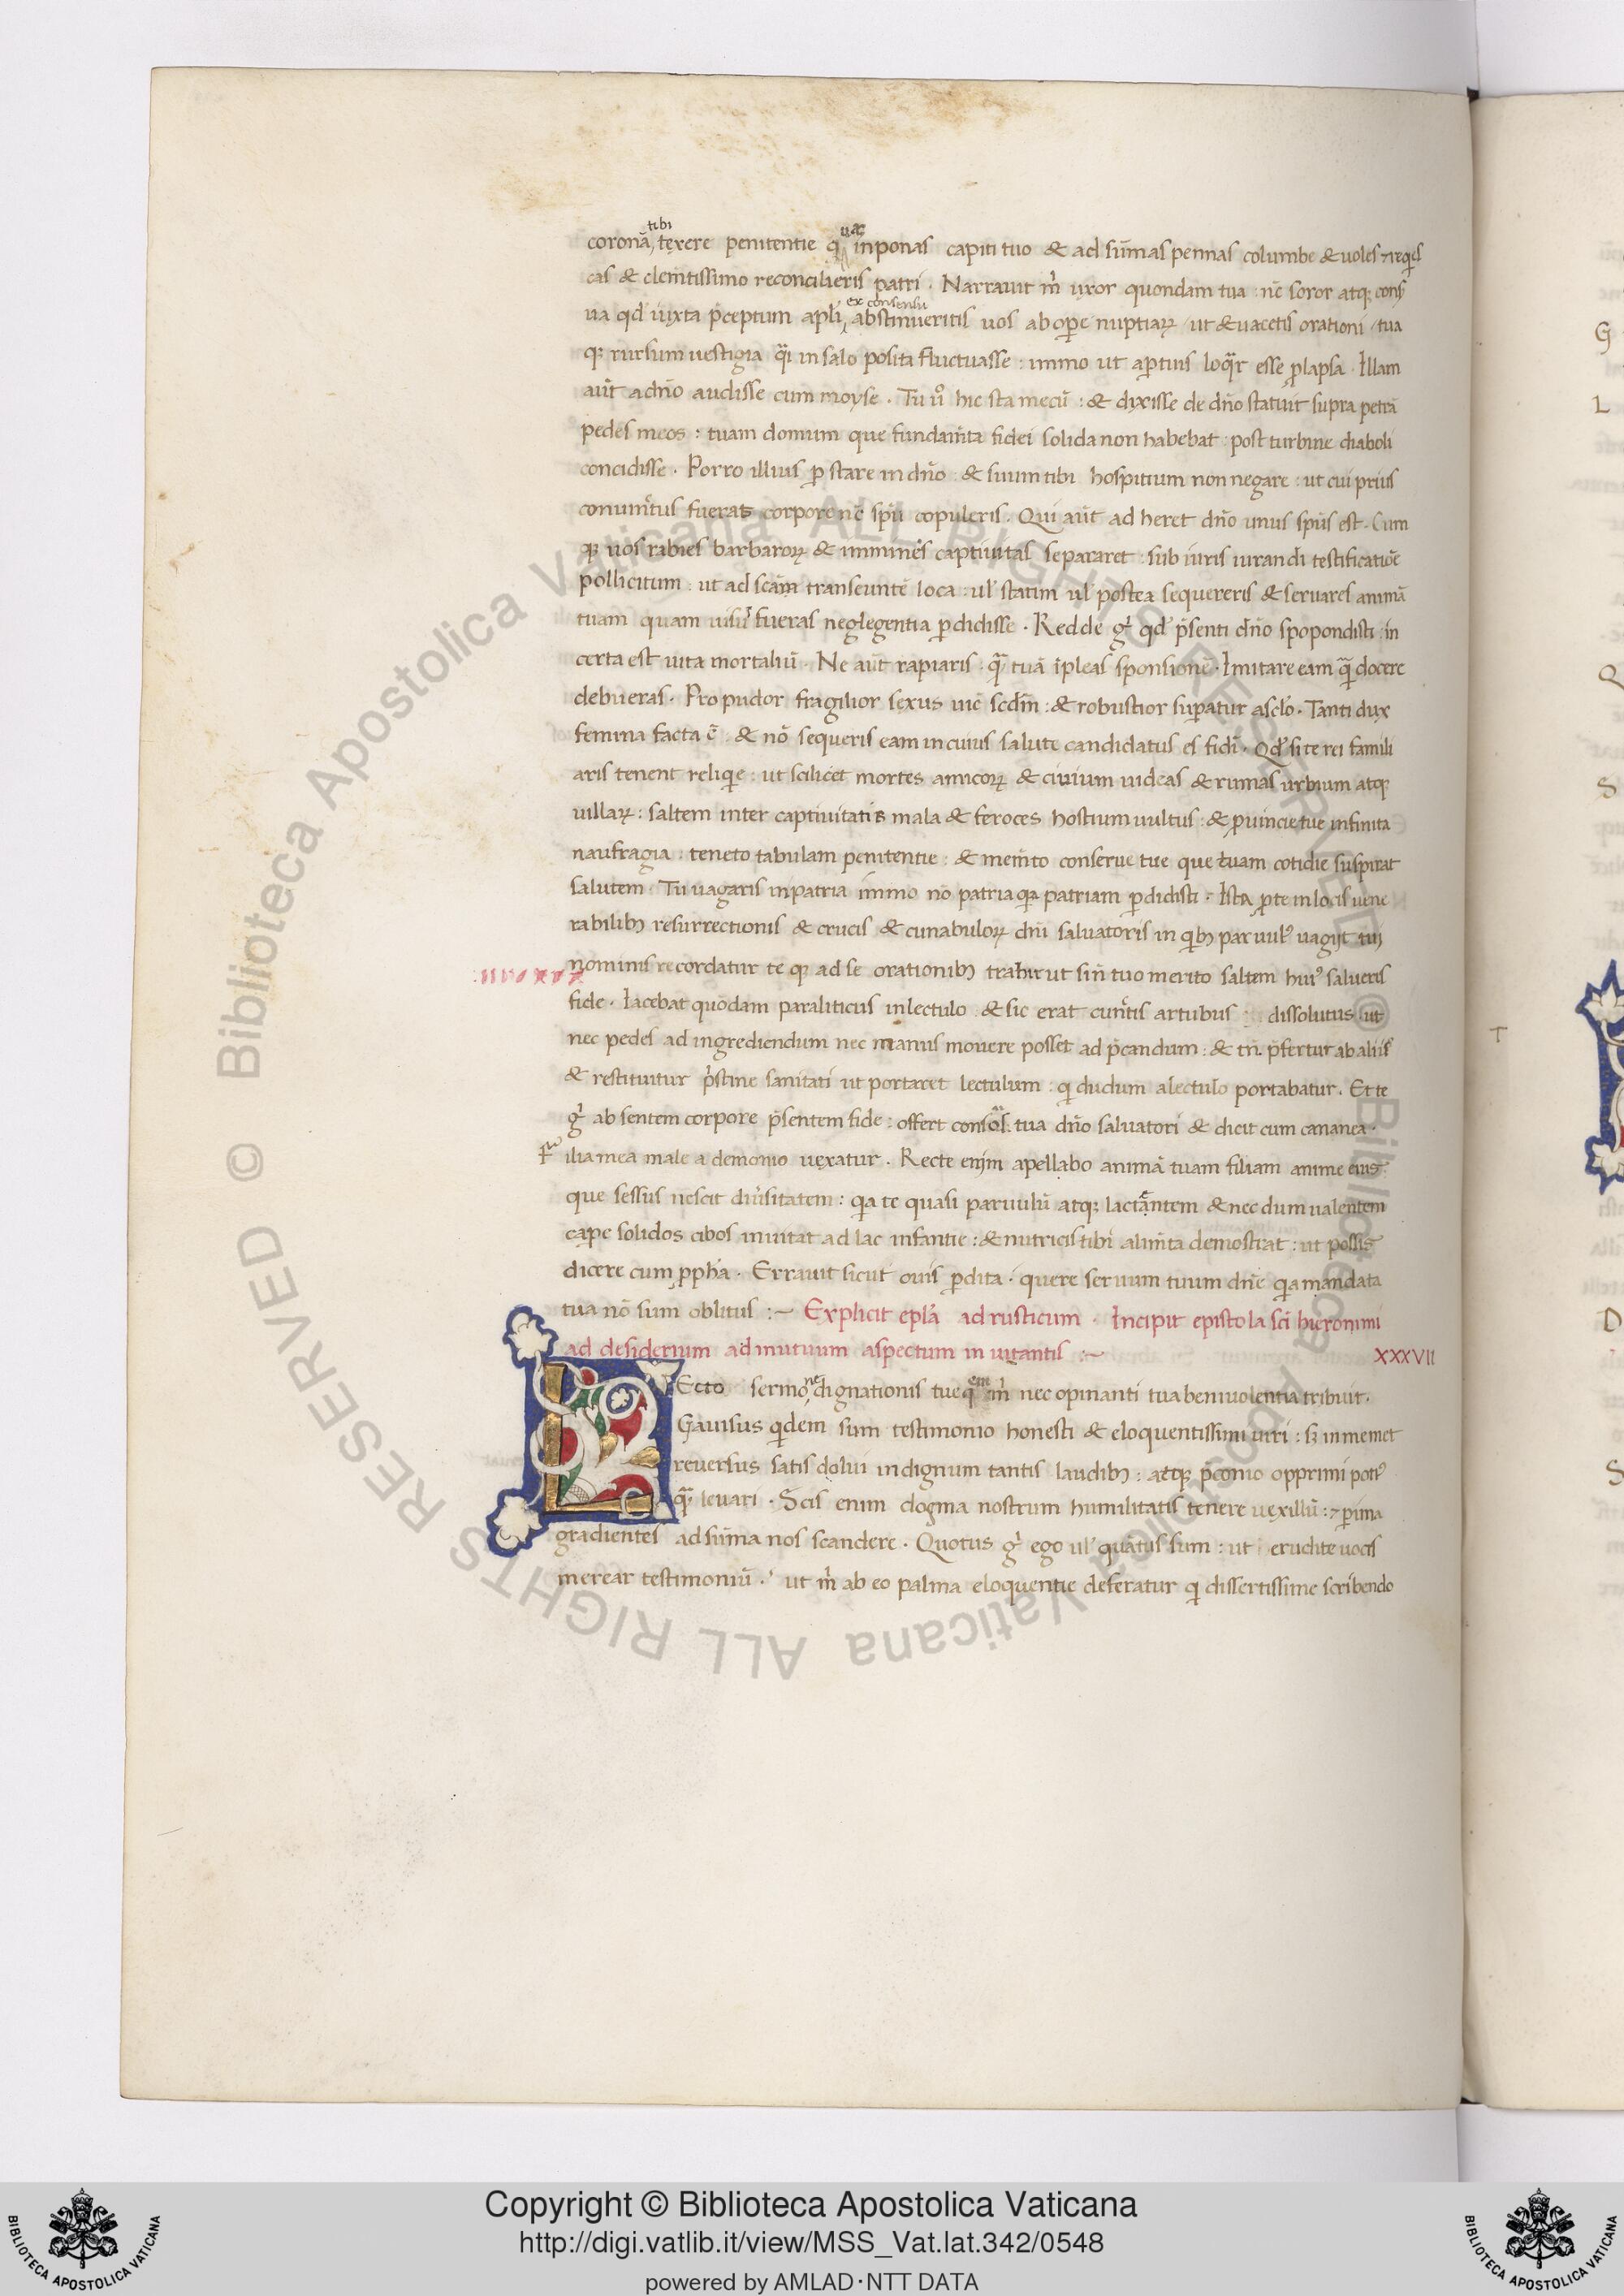 coronā tibi texere penitentie q̄ uae inponas capiti tuo & ad sūmas pennas columbe & uoles ⁊ reqͥes
cas & clem̄tissimo reconcilieris patri . Narrauit m̄ uxor quondam tua : nc̄ soror atqꝫ cons̄
ua qd̄ iuxta p̄ceptum apl̄i ex consensu abstinueritis uos ab oꝑe nuptiaꝝ / ut & uacetis orationi / tua
qꝫ rursum uestigia qͣi in salo posita fluctuasse : immo ut aꝑtius loqͣr esse ꝓlapsa . Illam
aūt a dn̄o audisse cum moyse . Tu ů hic sta mecū : & dixisse de dn̄o statuit supra petrā
pedes meos : tuam domum que fundam̄ta fidei solida non habebat : post turbine diaboli
concidisse . Porro illius ꝑstare in dn̄o : & suum tibi hospitium non negare : ut cui prius
coniun̄tus fueras corpore nc̄ sp̄u copuleris . Qui aūt ad heret dn̄o unus sp̄us est . Cum
qꝫ uos rabies barbaroꝝ & imminēs captiuitas separaret : sub iuris iurandi testificatiōe
pollicitum : ut ad sc̄am transeunte loca : ul̄ statim ul̄ postea sequereris & seruares animā
tuam quam uisuˢ fueras neglegentia ꝑdidisse . Redde gͥ qd̄ p̄senti dn̄o spopondisti : in
certa est uita mortaliū . Ne aūt rapiaris : qͣ tuā īpleas sponsionē . Imitare eam qͣ docere
debueras . Pro pudor fragilior sexus uic̄ scd̄m : & robustior suꝑatur a scl̄o . Tanti dux
femina facta ē : & nō sequeris eam in cuius salute candidatus es fidi . Qd̄ si te rei famili
aris tenent reliqͥe : ut scilicet mortes amicoꝝ & ciuium uideas & ruinas urbium atqꝫ
uillaꝝ : saltem inter captiuitatis mala & feroces hostium uultus : & ꝓuincie tue infinita
naufragia : teneto tabulam penitentie : & mem̄to conserue tue que tuam cotidie suspirat
salutem . Tu uagaris in patria immo nō patria qͥa patriam ꝑdidisti . Ista ꝓ te in locis uene
rabilibꝫ resurrectionis & crucis & cunabuloꝝ dn̄i saluatoris in qͥbꝫ paruulꝰ uagijt tui
nominis recordatur te qꝫ ad se orationibꝫ trahit ut sin̄ tuo merito saltem huiꝰ salueris
fide . Iacebat quodam paraliticus in lectulo : & sic erat cun̄tis artubus dissolutus ut
nec pedes ad ingrediendum nec manus mouere posset ad p̄candum : & tn̄ p̄fertur ab aliis
& restituitur pͥstine sanitati ut portaret lectulum : qͥ dudum a lectulo portabatur . Et te
gͥ absentem corpore p̄sentem fide : offert consoˢ tua dn̄o saluatori & dicit cum cananea .
F ilia mea male a demonio uexatur . Recte enim apellabo animā tuam filiam anime eius
que sessus nescit diūsitatem : qͥa te quasi paruulū atqꝫ lactentem & nec dum ualentem
caꝑe solidos cibos inuitat ad lac infantie : & nutricis tibi alim̄ta demostrat : ut possis
dicere cum ꝓph̄a . Errauit sicut ouis ꝑdita . quere seruum tuum dn̄e qͥa mandata
tua nō sum oblitus :~ Explicit epl̄a ad rusticum . Incipit epistola sc̄i hieronimi
ad desiderium ad mutuum aspectum in uitantis :~ XXXVII
LEcto sermone dignationis tue quem m̄ nec opinanti tua beniuolentia tribuit .
Gauisus qͥdem sum testimonio honesti & eloquentissimi uiri : sꝫ in memet
reuersus satis dolui indignum tantis laudibꝫ : atqꝫ p̄conio opprimi potiꝰ
qͣ leuari . Scis enim dogma nostrum humilitatis tenere uexillū : ⁊ ꝑ ima
gradientes ad sūma nos scandere . Quotus gͥ ego ul̄ quātus sum : ut erudite uocis
merear testimoniū . ut m̄ ab eo palma eloquentie deferatur qͥ dissertissime scribendo
G
L
S
T
D
S
© Biblioteca Apostolica Vaticana ALL RIGHTS RESERVED © Biblioteca Apostolica Vaticana ALL RIGHTS RESERVED
Copyright © Biblioteca Apostolica Vaticana
http://digi.vatlib.it/view/MSS_Vat.lat.342/0548
powered by AMLAD·NTT DATA
BIBLIOTECA APOSTOLICA VATICANA
BIBLIOTECA APOSTOLICA VATICANA